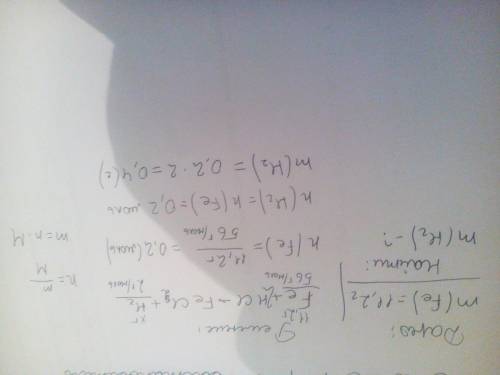 Дано:
m(Fe) = 11,2г
Найти:
m(H₂) - ?
Решение:
11,2г xг
Fe + 2HCl → FeCl₂ + H₂
56г/моль 2г/моль
n(Fe) = 11,2г / 56г/моль = 0,2(моль)
n(H₂) = n(Fe) = 0,2 моль
m(H₂) = 0,2 · 2 = 0,4(г)
n = m/M
m = n · M